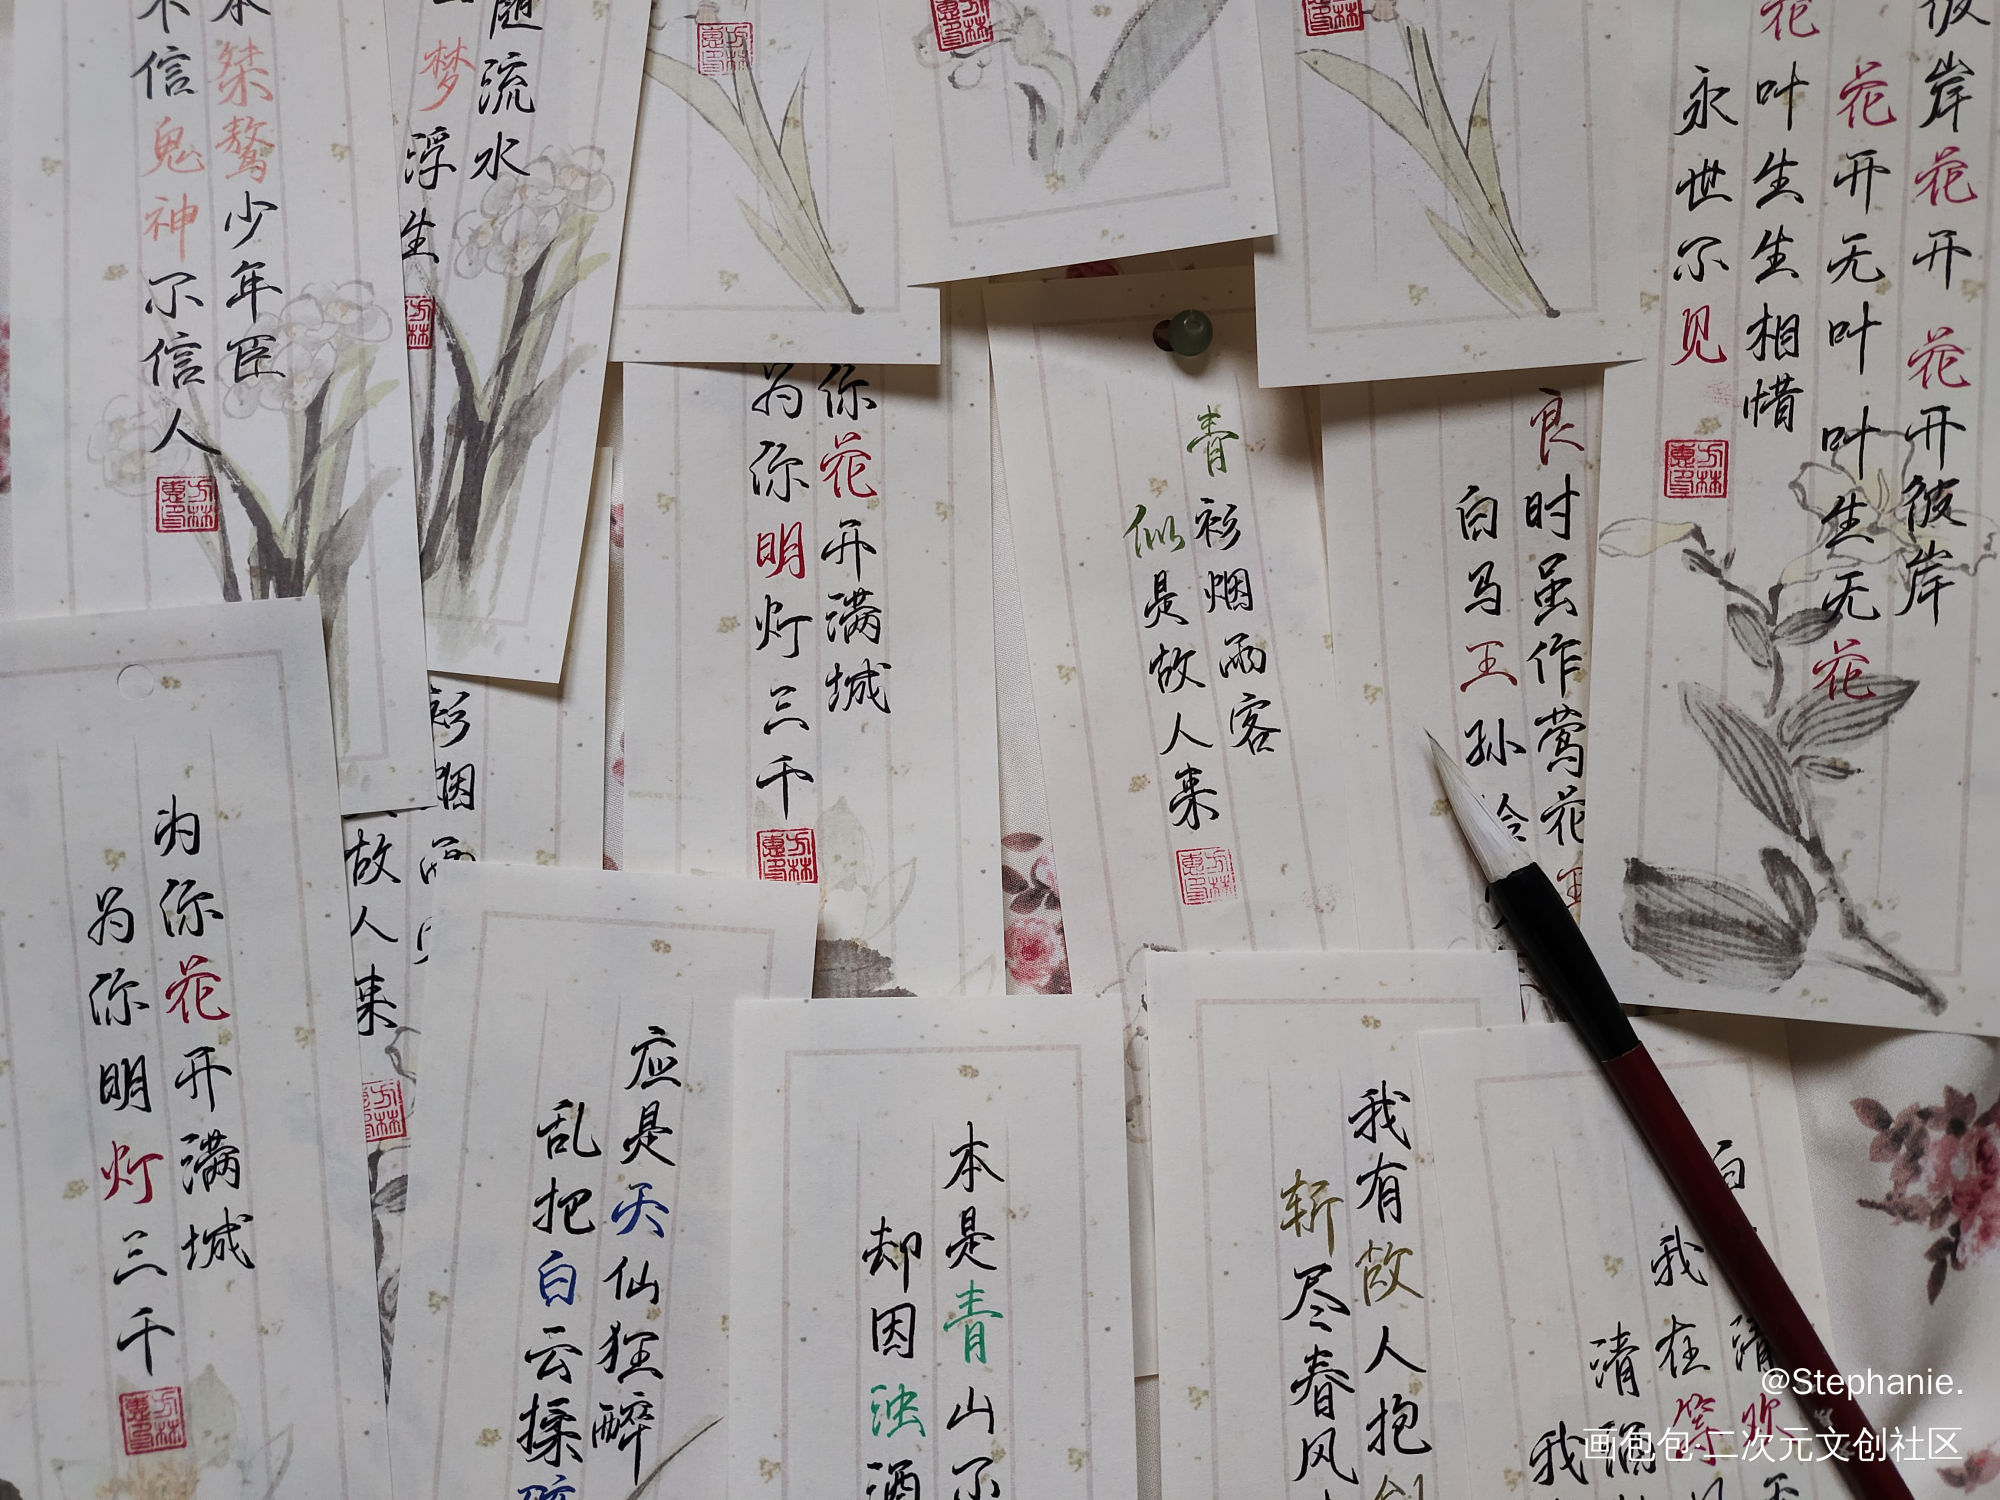 桀骜少年臣
不信鬼神不信人
随流水
梦浮生
你花开满城
为你明灯三千
青衫烟雨客
似是故人来
良时虽作莺花
白马王孙
彼岸花开花开彼岸
花开无叶叶生无花
花叶生生相惜
永世不见
为你花开满城
为你明灯三千
衫烟雨
故人来
应是天仙狂醉
乱把白云揉
本是青山不
却因浊酒
我有故人抱剑
斩尽春风
白
清欢
我在等
清酒
我
@Stephanie.
画包包·二次元文创社区